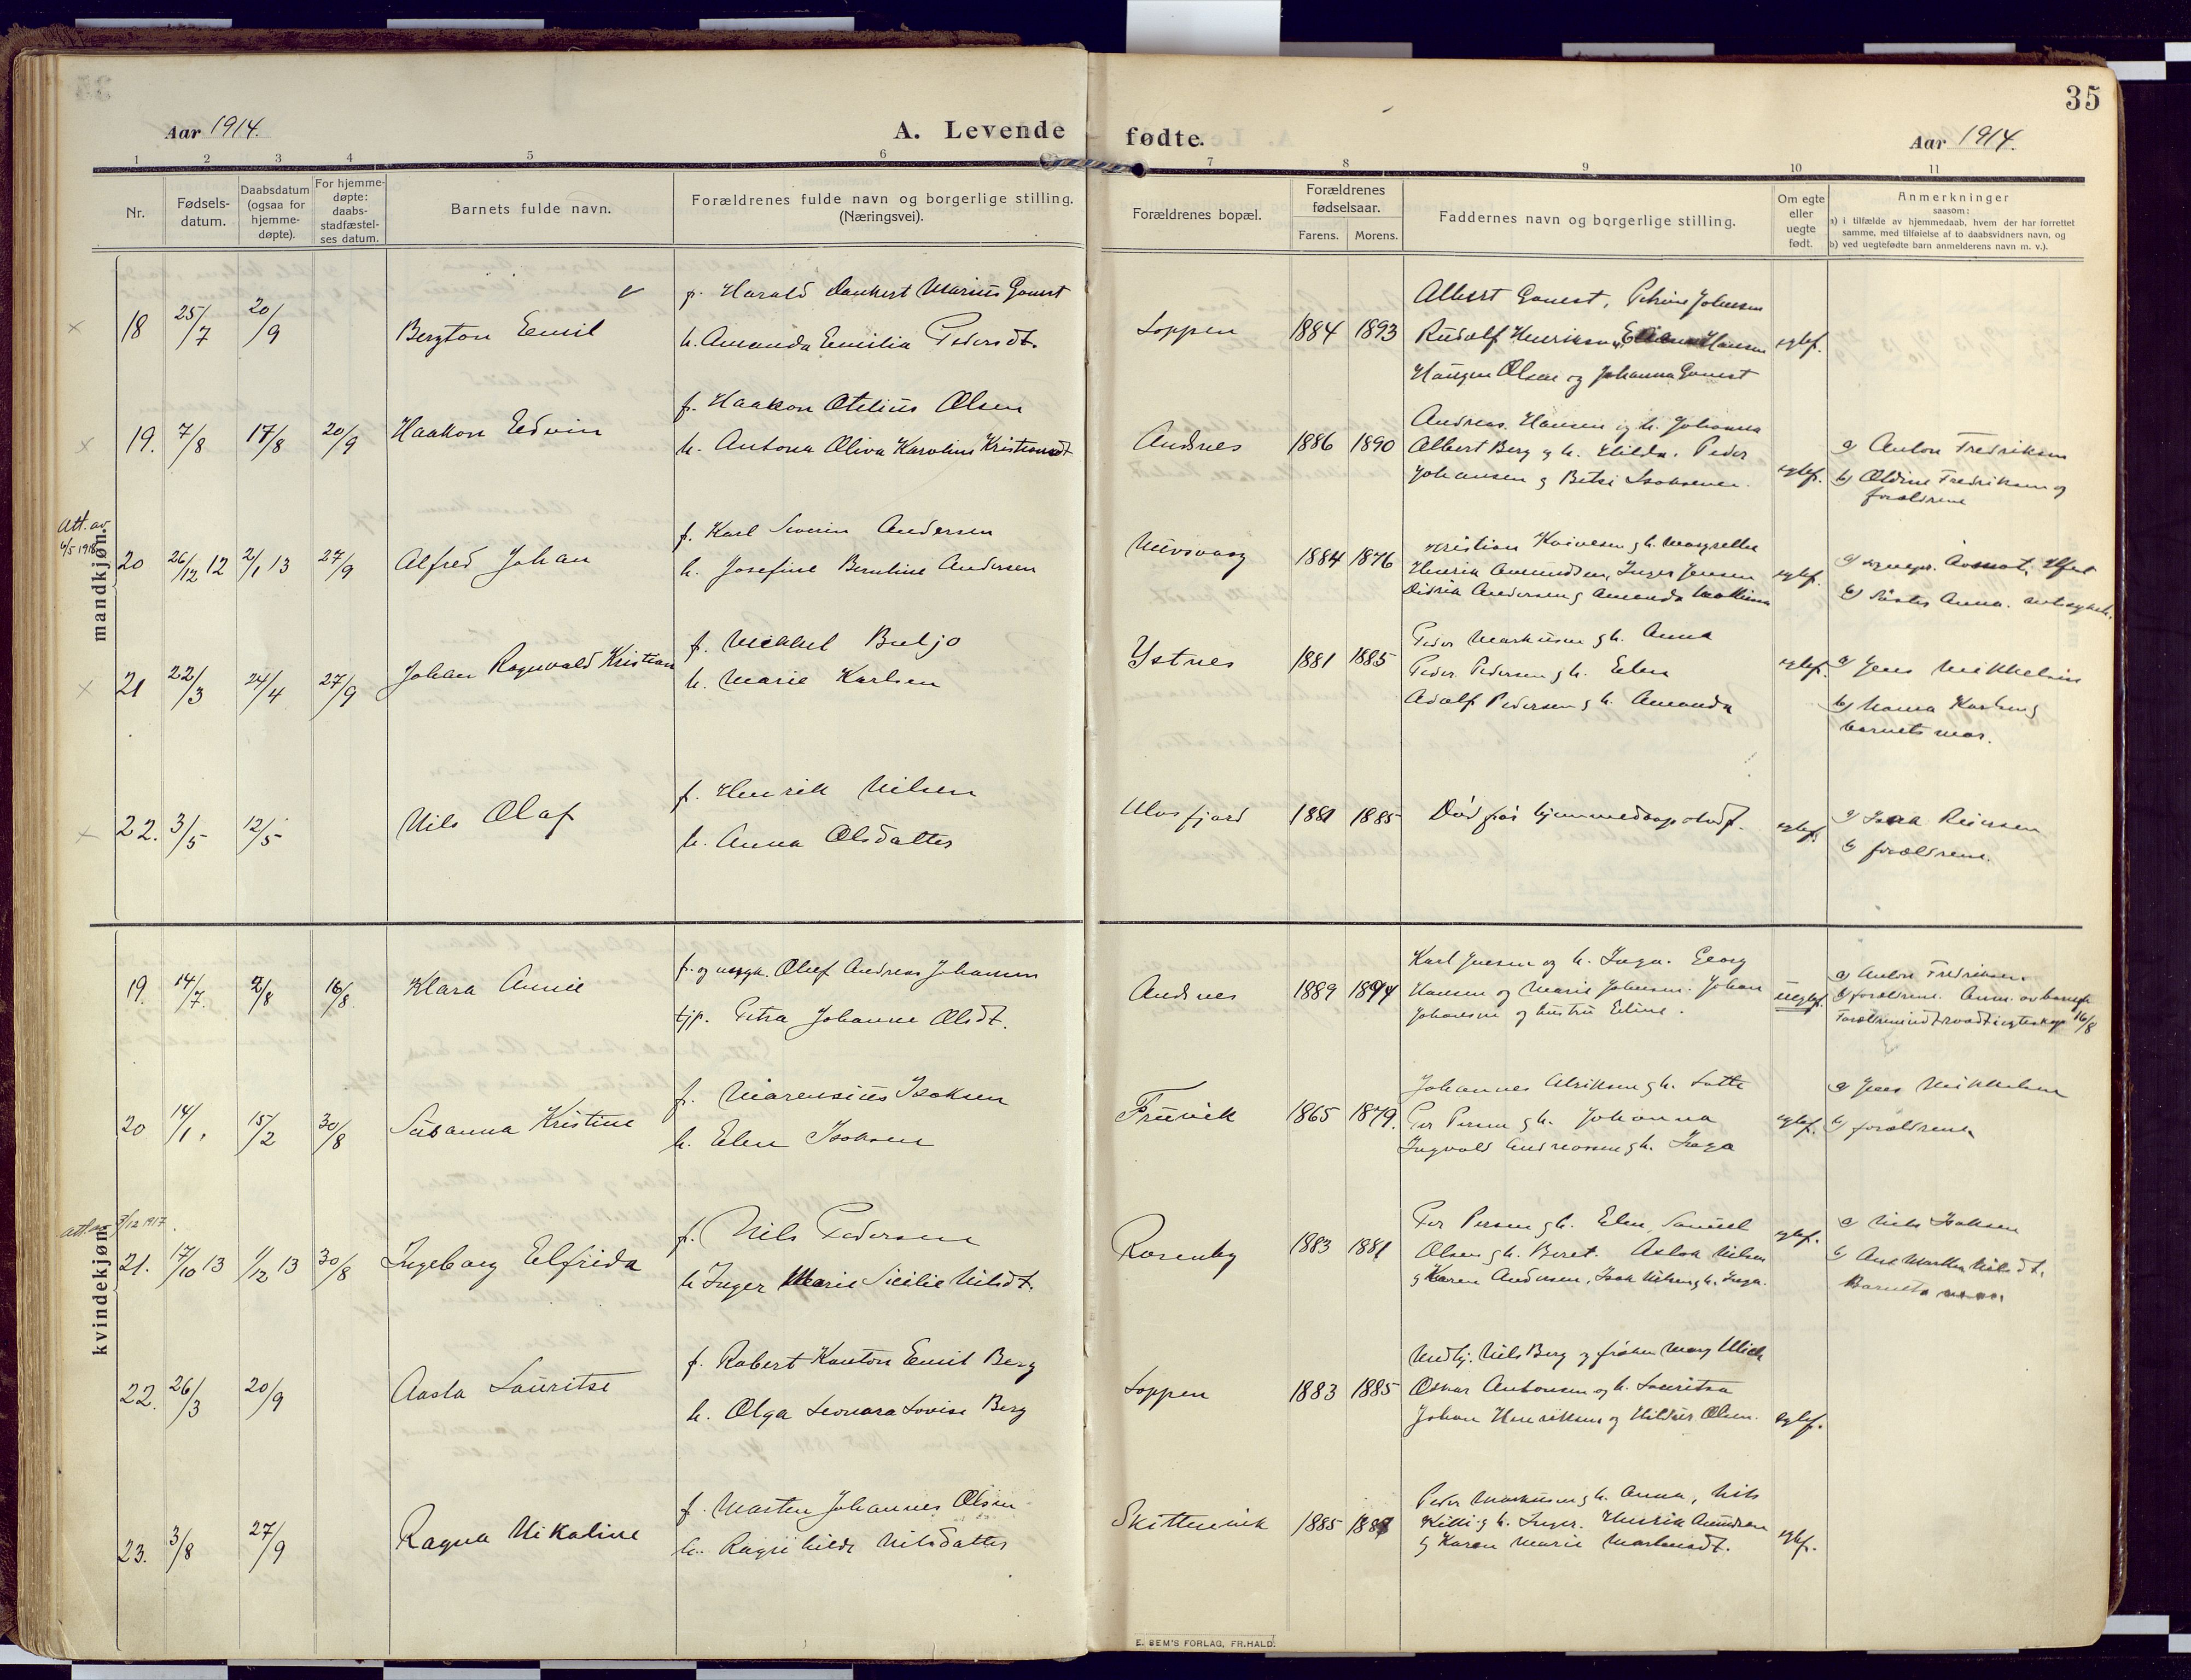 35
Aar 1914.
A. Levende fødte.
Aar 1914.
1 2 3 4 5 6 7 8 9 10 11
Nr.
Fødsels-
datum.
Daabsdatum
(ogsaa for
hjemme-
døpte).
For hjemme-
døpte:
daabs-
stadfæstel-
ses datum.
Barnets fulde navn.
Forældrenes fulde navn og borgerlige stilling.
(Næringsvei).
Forældrenes bopæl.
Forældrenes
fødselsaar.
Farens. Morens.
Faddernes navn og borgerlige stilling.
Om egte
eller
uegte
født.
Anmerkninger
saasom:
a) i tilfælde av hjemmedaab, hvem der har forrettet
samme, med tilføielse af to daabsvidners navn, og
b) ved uegtefødte barn anmelderens navn m. v.).
mandkjøn.
18 25/7 20/9
Bergton Emil
f. Harald Dankert Marius
h. Amanda Emilia Pedersdt.
Loppen 1884 1893
Albert
Rudolf Henriksen, Hansen
Haugen Olsen og Johanna
egtef.
19. 7/8 17/8 20/9
Haakon Edvin
f. Haakon Otelius Olsen
h. Antona Oliva Karoline
Andsnes 1886 1890
Andreas Hansen og h. Johanna
Albert Berg g h. Hilda. Peder
Johansen g Betsi
egtef.
a) Anton Fredriksen
b) Oldine Fredriksen og
forældrene
Att. av
20 26/12 12 2/1 13 27/9
Alfred Johan
f. Karl Severin Andersen
h. Josefine Berntine Andersen
1884 1876
Kristian
Henrik Amundsen, Inger Jensen
Didrik Andersen g Amanda
egtef.
21 22/3 24/4 27/9
Johan Ragnvald Kristian
f. Mikkel Buljo
h. Marie Karlsen
Ystnes 1881 1885
Peder Markussen g h. Anna
Peder Pedersen g h. Elen
Adolf Pedersen g h. Amanda
egtef.
a) Jens Mikkelsen
b) Karlsen g
barnets mor.
22. 3/5 12/5
Nils Olaf
f. Henrik Nilsen
h. Anna Olsdatter
Ulvsfjord 1881 1885
Død før
egtef.
a) Isak Reiersen
b) forældrene.
kvindekjøn.
19. 14/7. 2/8 16/8.
Klara Annie
f. og ungk. Oluf Andreas Johansen
tjp. Petra Johanne Olsdt.
Andsnes 1889 1894
Karl Jensen og h. Inga. Georg
Hansen og Marie Johansen. Johan
Johansen og hustru Eline.
uegtef.
a) Anton Fredriksen.
b) forældrene. Anm. av
16/8
20 14/1. 15/2 30/8
Susanna Kristine
f. Marensius Isaksen
h. Elen Isaksen
Fruvik 1865 1879.
Johannes Alriksen g h. Lotte
Per Persen g h. Johanna
Ingvald Andreassen g h. Inga
egtef.
a) Jens Mikkelsen
b) forældrene
7/12 1917.
21. 17/10 13 1/12 13 30/8
Ingeborg Elfrida
f. Nils Pedersen
h. Inger Marie Sicilie Nilsdt.
Rosenby 1883 1881
Per Persen g h. Elen, Samuel
Olsen g h. Beret. Aslak Nilsen
g Karen Andersen, Isak Nilsen g h. Inga.
egtef.
a) Nils Isaksen
b) Ane Marthe Nilsdt.
Barnets
22. 26/3 20/9
Aasta Lauritse
f. Robert Konton Emil Berg
h. Olga Leonora Lovise Berg
Loppen 1883 1885
Nils Berg g frøken Mary Ulich
Oskar Antonsen og h. Lauritza
Johan Henriksen og Hildur Olsen.
egtef.
23. 3/8 27/9
Ragna Nikoline
f. Morten Johannes Olsen
h. Ragnhilde Nilsdatter
Skittenvik 1885
Peder Markussen g h. Anna, Nils
Kitti g h. Inger. Henrik
g Karen Marie
egtef.
E. SEM'S FORLAG, FR.HALD.